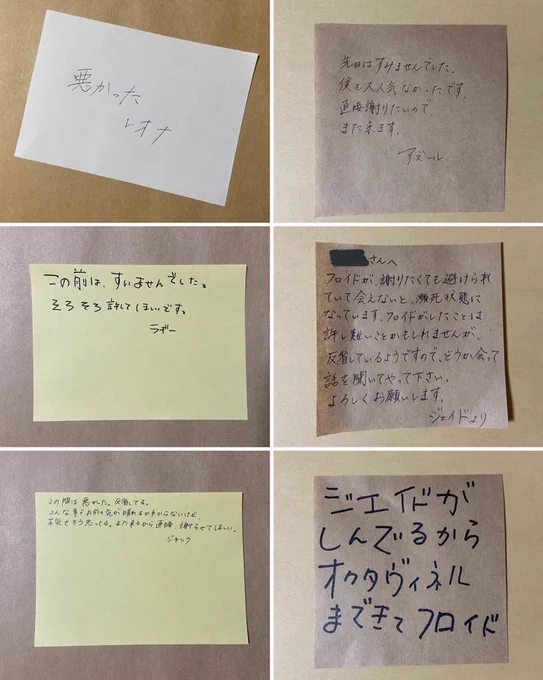 悪かった
レオナ
先日はすみませんでした。
僕も大人気なかったです。
直接謝りたいので、
また来ます。
アズール
この前は、すいませんでした。
そろそろ許してほしいです。
ラギー
さんへ
フロイドが、謝りたくても避けられ
ていて会えないと、瀕死状態に
なっています。フロイドがしたことは
許し難いことかもしれませんが、
反省しているようですので、どうか会って
話を聞いてやって下さい。
よろしくお願いします。
ジェイドより
この間は悪かった。反省してる。
こんな事でお前の気が晴れるかわからないけど、
本気でそう思ってる。また来るから直接、謝らせてほしい。
ジャック
ジェイドが
しんでるから
オクタヴィネル
まできて フロイド